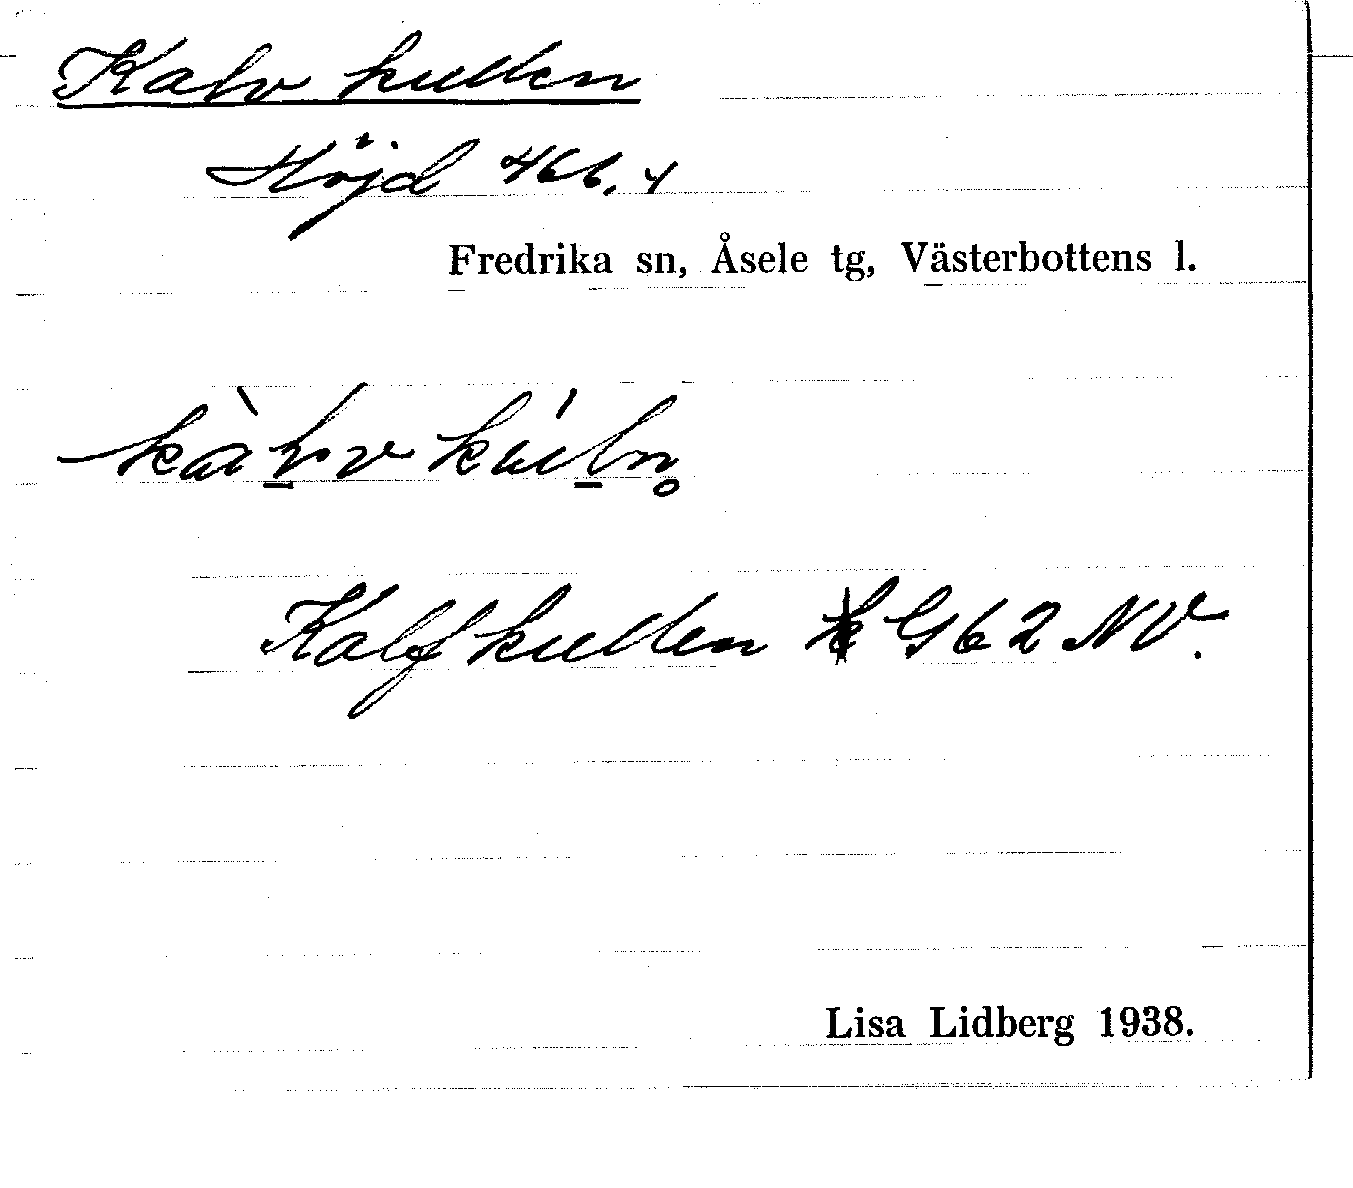 Kalvkullen
Höjd 466,4
Fredrika sn, Åsele tg, Västerbottens l.
Kalfkullen G62 NV.
Lisa Lidberg 1938.